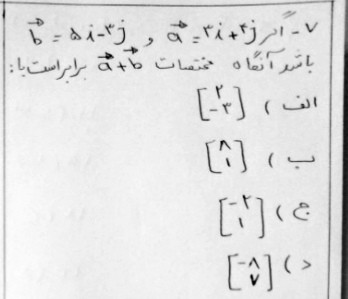 ۷- اگر a⃗ = ۳i+۴j و b⃗ = ۵i-۳j
باشد آنگاه مختصات a⃗+b⃗ برابر است با:
الف) [۲ -۳]
ب) [۸ ۱]
ج) [-۲ ۱]
د) [-۸ ۷]